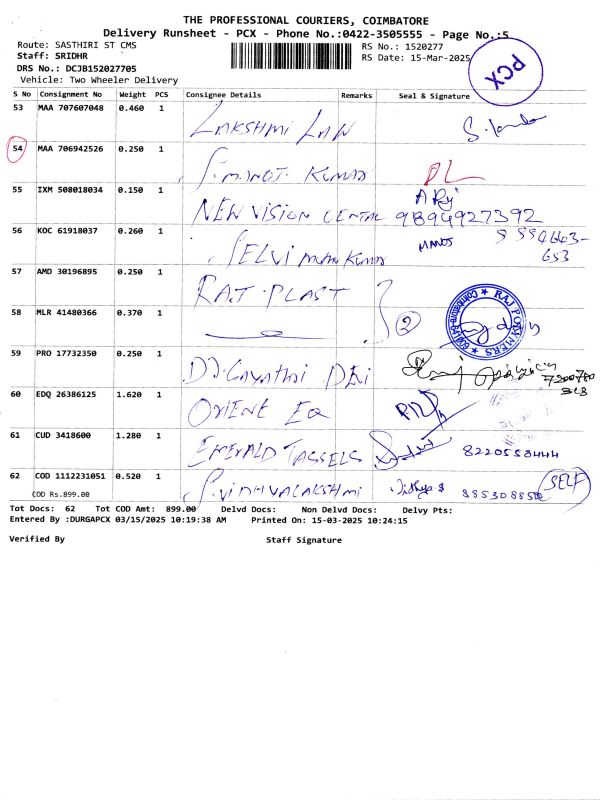 THE PROFESSIONAL COURIERS, COIMBATORE
Delivery Runsheet - PCX - Phone No.:0422-3505555 - Page No.:5
Route: SASTHIRI ST CMS
RS No.: 1520277
Staff: SRIDHR
RS Date: 15-Mar-2025
DRS No.: DCJB152027705
Vehicle: Two Wheeler Delivery
PCX
S No Consignment No Weight PCS Consignee Details Remarks Seal & Signature
53 MAA 707607048 0.460 1 LAKSHMI LAW
54 MAA 706942526 0.250 1 S.MANOJ KUMAR DL
55 IXM 508018034 0.150 1 NEW VISION DENTAL 9894927392
56 KOC 61918037 0.260 1 SELVI MUTHU KUMAR MANOJ
57 AMD 30196895 0.250 1 RAJ PLAST
58 MLR 41480366 0.370 1 2 RAJ POLYMERS
59 PRO 17732350 0.250 1 GAYATHRI DEVI
60 EDQ 26386125 1.620 1 ORIENT EQ
61 CUD 3418600 1.280 1 EMERALD TASSELS 8220553444
62 COD 1112231051 0.520 1 S.VIDHYALAKSHMI Vidhya S SELF
COD Rs.899.00
Tot Docs: 62 Tot COD Amt: 899.00 Delvd Docs: Non Delvd Docs: Delvy Pts:
Entered By :DURGAPCX 03/15/2025 10:19:38 AM Printed On: 15-03-2025 10:24:15
Verified By Staff Signature